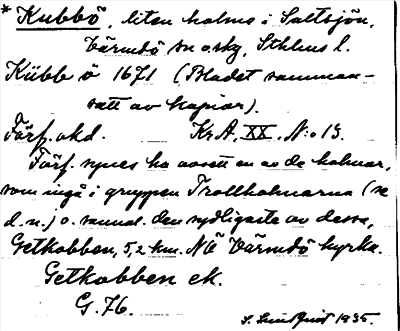 * Kubbö, liten holme i Saltsjön,
Värmdö sn o skg, Sthlms l.
Kübb ö 1671 (Bladet samman-
satt av kopior).
Förf. okd. Kr.A. XX. N:o 13.
Förf. synes ha avsett en av de holmar,
som ingå i gruppen Trollholmarna (se
d. n.) o. sannol. den sydligaste av dessa,
Getkobben, 5,2 km. NÖ Värmdö kyrka.
Getkobben ek.
G. 76.
S. Lundquist 1935.